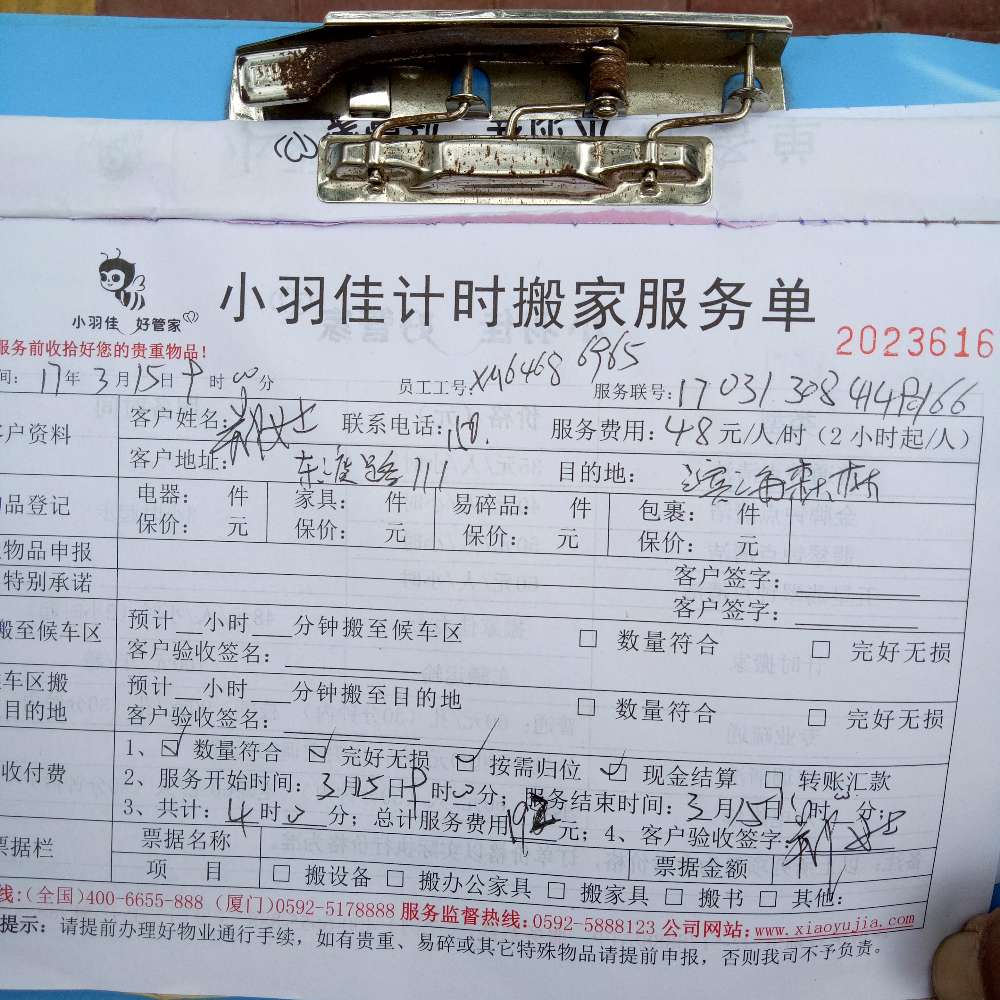 小羽佳 好管家
小羽佳计时搬家服务单
2023616
服务前收拾好您的贵重物品!
间: 17年3月15日 时00分 员工工号: xm6468 6965 服务联号:
户资料 客户姓名: 女士 联系电话: 服务费用: 48元/人/时 (2小时起/人)
客户地址: 东渡路111 目的地: 滨海森林
品登记 电器: 件 家具: 件 易碎品: 件 包裹: 件
保价: 元 保价: 元 保价: 元 保价: 元
物品申报 客户签字:
特别承诺 客户签字:
搬至候车区 预计 小时 分钟搬至候车区 □ 数量符合 □ 完好无损
客户验收签名:
车区搬 预计 小时 分钟搬至目的地 □ 数量符合 □ 完好无损
目的地 客户验收签名:
收付费 1、☑ 数量符合 ☑ 完好无损 ☑ 按需归位 ☑ 现金结算 □ 转账汇款
2、服务开始时间: 3月15日 时 分; 服务结束时间: 3月15日 时 分;
3、共计: 4时 分; 总计服务费用192元; 4、客户验收签字: 女士
票据栏 票据名称 票据金额
项 目 □ 搬设备 □ 搬办公家具 □ 搬家具 □ 搬书 □ 其他:
线:(全国)400-6655-888 (厦门)0592-5178888 服务监督热线:0592-5888123 公司网站:www.xiaoyujia.com
提示: 请提前办理好物业通行手续,如有贵重、易碎或其它特殊物品请提前申报,否则我司不予负责。